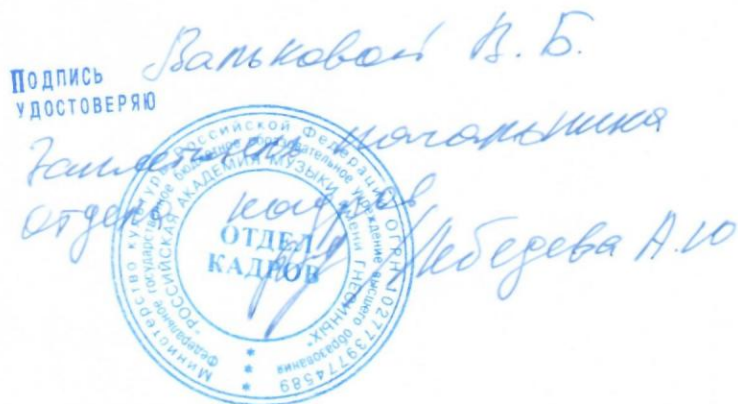 Подпись Вальковой В. Б.
удостоверяю
Заместитель начальника
отдела кадров
Лебедева А.Ю
Министерство культуры Российской Федерации ОГРН 1027739774589
Федеральное государственное бюджетное образовательное учреждение высшего образования
"РОССИЙСКАЯ АКАДЕМИЯ МУЗЫКИ имени ГНЕСИНЫХ"
ОТДЕЛ
КАДРОВ